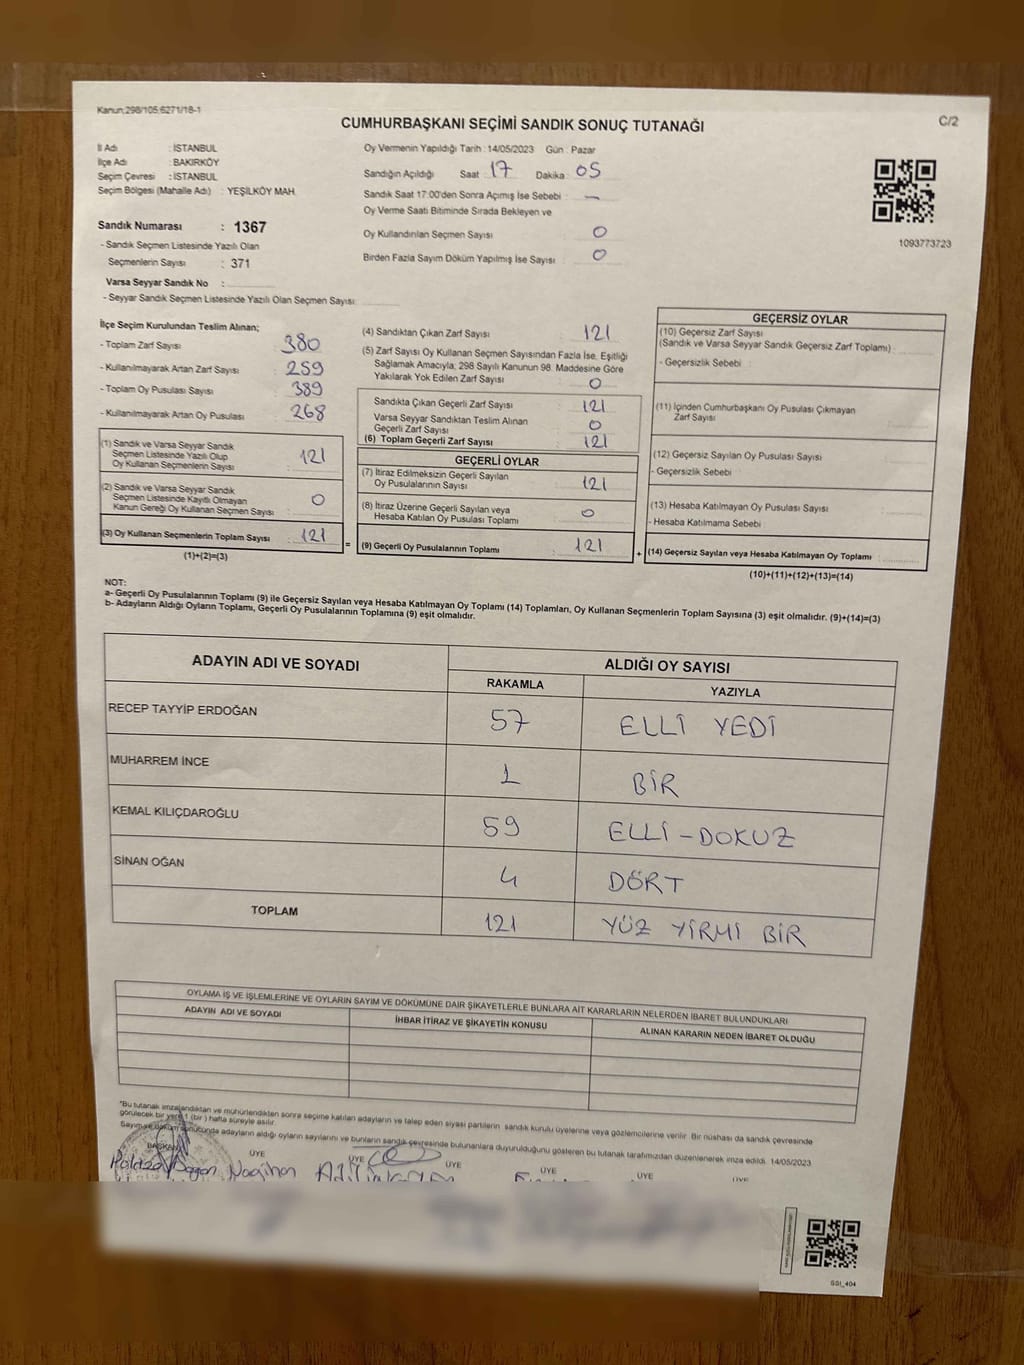 Kanun:298/105;6271/18-1
C/2
CUMHURBAŞKANI SEÇİMİ SANDIK SONUÇ TUTANAĞI
İl Adı : İSTANBUL
İlçe Adı : BAKIRKÖY
Seçim Çevresi : İSTANBUL
Seçim Bölgesi (Mahalle Adı) : YEŞİLKÖY MAH.
Sandık Numarası : 1367
- Sandık Seçmen Listesinde Yazılı Olan
Seçmenlerin Sayısı : 371
Varsa Seyyar Sandık No :
- Seyyar Sandık Seçmen Listesinde Yazılı Olan Seçmen Sayısı:
Oy Vermenin Yapıldığı Tarih : 14/05/2023 Gün : Pazar
Sandığın Açıldığı Saat 17 Dakika : 05
Sandık Saat 17:00'den Sonra Açımış İse Sebebi : —
Oy Verme Saati Bitiminde Sırada Bekleyen ve
Oy Kullandırılan Seçmen Sayısı : 0
Birden Fazla Sayım Döküm Yapılmış İse Sayısı : 0
1093773723
İlçe Seçim Kurulundan Teslim Alınan;
- Toplam Zarf Sayısı : 380
- Kullanılmayarak Artan Zarf Sayısı : 259
- Toplam Oy Pusulası Sayısı : 389
- Kullanılmayarak Artan Oy Pusulası : 268
(1) Sandık ve Varsa Seyyar Sandık
Seçmen Listesinde Yazılı Olup
Oy Kullanan Seçmenlerin Sayısı : 121
(2) Sandık ve Varsa Seyyar Sandık
Seçmen Listesinde Kayıtlı Olmayan
Kanun Gereği Oy Kullanan Seçmen Sayısı : 0
(3) Oy Kullanan Seçmenlerin Toplam Sayısı : 121
(1)+(2)=(3)
(4) Sandıktan Çıkan Zarf Sayısı : 121
(5) Zarf Sayısı Oy Kullanan Seçmen Sayısından Fazla İse, Eşitliği
Sağlamak Amacıyla; 298 Sayılı Kanunun 98. Maddesine Göre
Yakılarak Yok Edilen Zarf Sayısı : 0
Sandıkta Çıkan Geçerli Zarf Sayısı : 121
Varsa Seyyar Sandıktan Teslim Alınan
Geçerli Zarf Sayısı : 0
(6) Toplam Geçerli Zarf Sayısı : 121
GEÇERLİ OYLAR
(7) İtiraz Edilmeksizin Geçerli Sayılan
Oy Pusulalarının Sayısı : 121
(8) İtiraz Üzerine Geçerli Sayılan veya
Hesaba Katılan Oy Pusulası Toplamı : 0
= (9) Geçerli Oy Pusulalarının Toplamı : 121
GEÇERSİZ OYLAR
(10) Geçersiz Zarf Sayısı
(Sandık ve Varsa Seyyar Sandık Geçersiz Zarf Toplamı)
- Geçersizlik Sebebi :
(11) İçinden Cumhurbaşkanı Oy Pusulası Çıkmayan
Zarf Sayısı :
(12) Geçersiz Sayılan Oy Pusulası Sayısı :
- Geçersizlik Sebebi :
(13) Hesaba Katılmayan Oy Pusulası Sayısı :
- Hesaba Katılmama Sebebi :
+ (14) Geçersiz Sayılan veya Hesaba Katılmayan Oy Toplamı :
(10)+(11)+(12)+(13)=(14)
NOT:
a- Geçerli Oy Pusulalarının Toplamı (9) ile Geçersiz Sayılan veya Hesaba Katılmayan Oy Toplamı (14) Toplamları, Oy Kullanan Seçmenlerin Toplam Sayısına (3) eşit olmalıdır. (9)+(14)=(3)
b- Adayların Aldığı Oyların Toplamı, Geçerli Oy Pusulalarının Toplamına (9) eşit olmalıdır.
ADAYIN ADI VE SOYADI ALDIĞI OY SAYISI
RAKAMLA YAZIYLA
RECEP TAYYİP ERDOĞAN 57 ELLİ YEDİ
MUHARREM İNCE 1 BİR
KEMAL KILIÇDAROĞLU 59 ELLİ-DOKUZ
SİNAN OĞAN 4 DÖRT
TOPLAM 121 YÜZ YİRMİ BİR
OYLAMA İŞ VE İŞLEMLERİNE VE OYLARIN SAYIM VE DÖKÜMÜNE DAİR ŞİKAYETLERLE BUNLARA AİT KARARLARIN NELERDEN İBARET BULUNDUKLARI
ADAYIN ADI VE SOYADI İHBAR İTİRAZ VE ŞİKAYETİN KONUSU ALINAN KARARIN NEDEN İBARET OLDUĞU
*Bu tutanak imzalandıktan ve mühürlendikten sonra seçime katılan adayların ve talep eden siyasi partilerin sandık kurulu üyelerine veya gözlemcilerine verilir. Bir nüshası da sandık çevresinde
görülecek bir yere 1 (bir) hafta süreyle asılır.
Sayım ve döküm sonucunda adayların aldığı oyların sayılarını ve bunların sandık çevresinde bulunanlara duyurulduğunu gösteren bu tutanak tarafımızdan düzenlenerek imza edildi. 14/05/2023
BAŞKAN ÜYE ÜYE ÜYE ÜYE ÜYE ÜYE
SSI_404